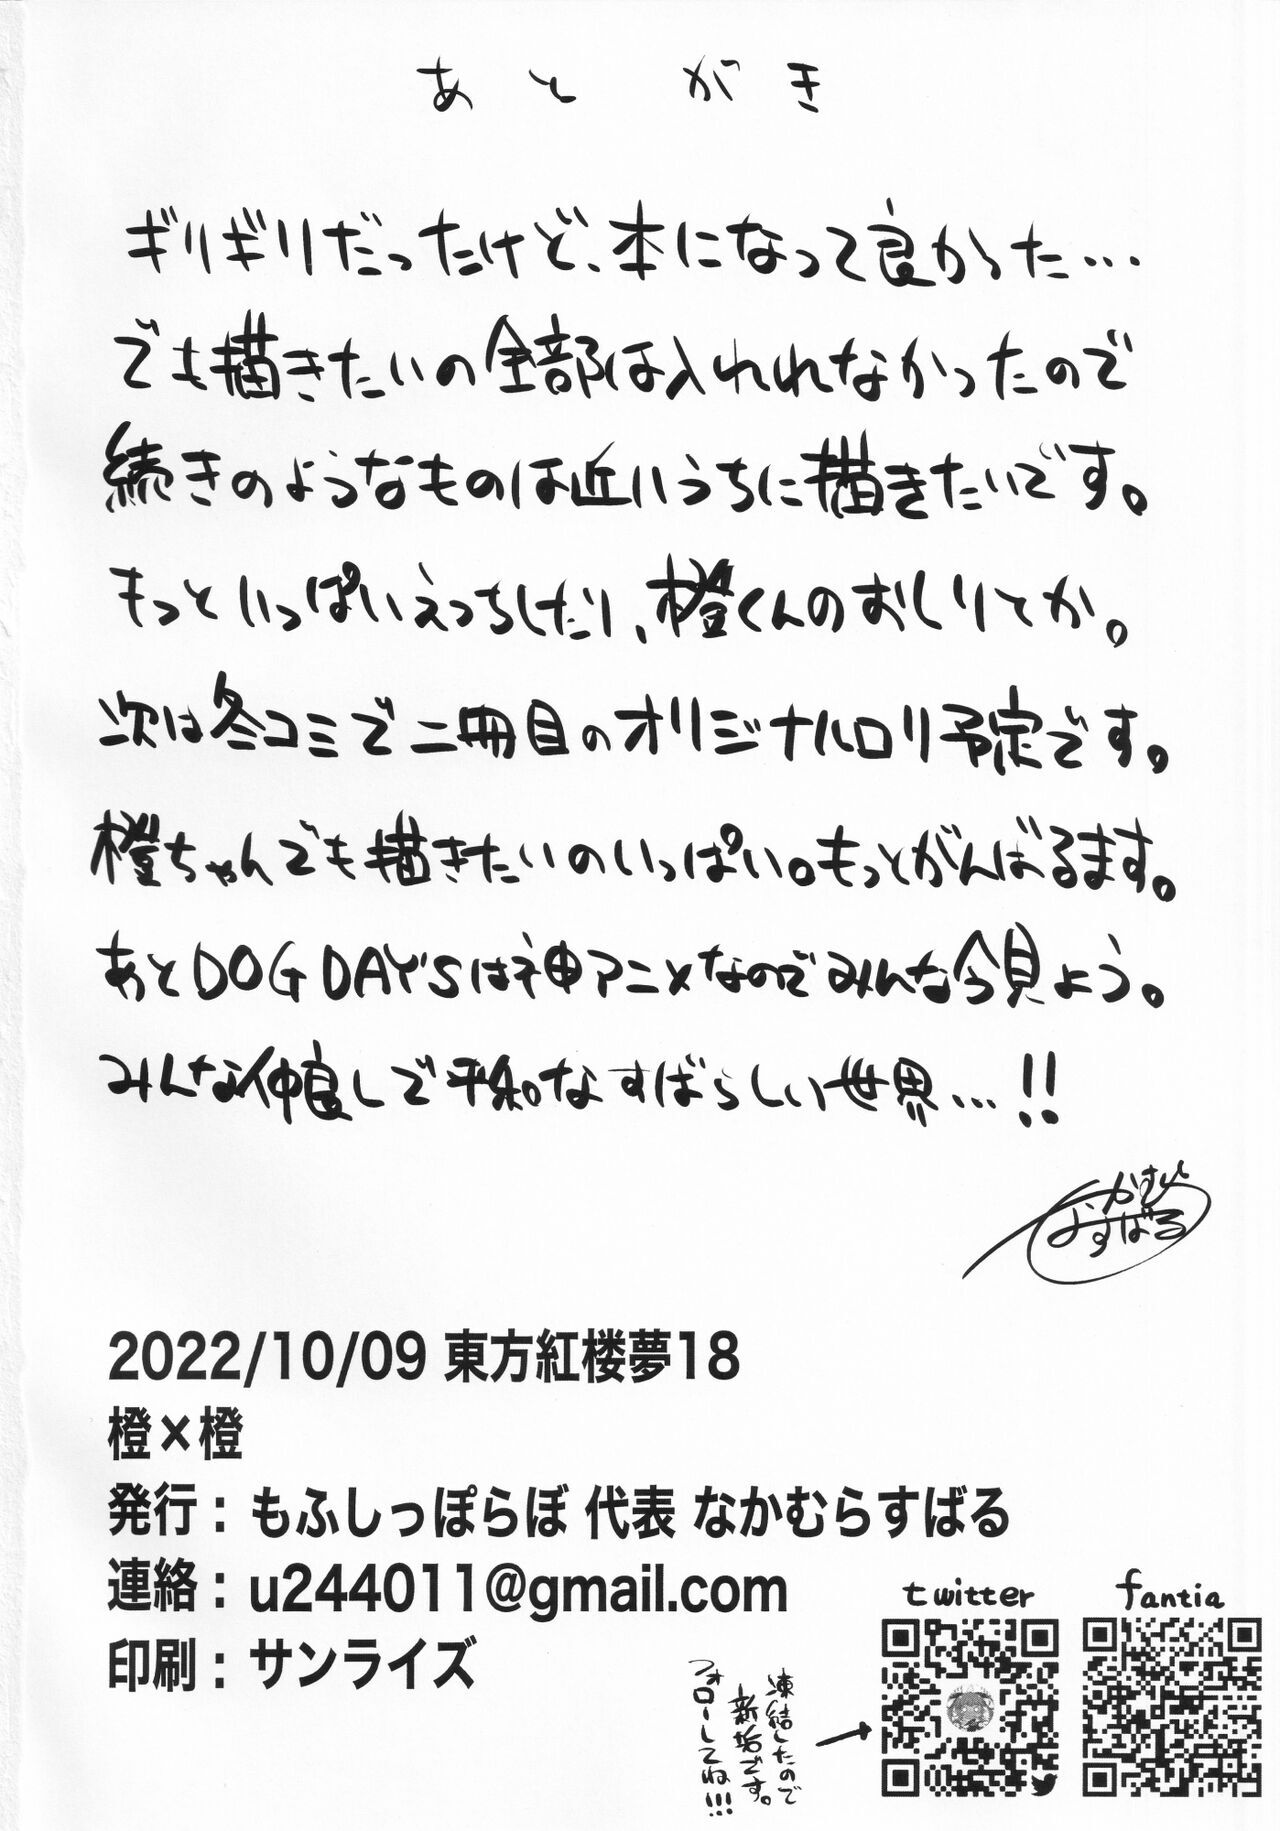 あとがき
ギリギリだったけど、本になって良かった…
でも描きたいの全部は入れれなかったので
続きのようなものは近いうちに描きたいです。
もっといっぱいえっちしたり、橙くんのおしりとか。
次は冬コミで二冊目のオリジナルロリ予定です。
橙ちゃんでも描きたいのいっぱい。もっとがんばるます。
あとDOG DAYSは神アニメなのでみんな今見よう。
みんな仲良しで平和なすばらしい世界…!!
すばる
2022/10/09 東方紅楼夢18
橙×橙
発行： もふしっぽらぼ 代表 なかむらすばる
連絡： u244011@gmail.com
印刷： サンライズ
twitter
fantia
凍結したので
新垢です。
フォローしてね!!!